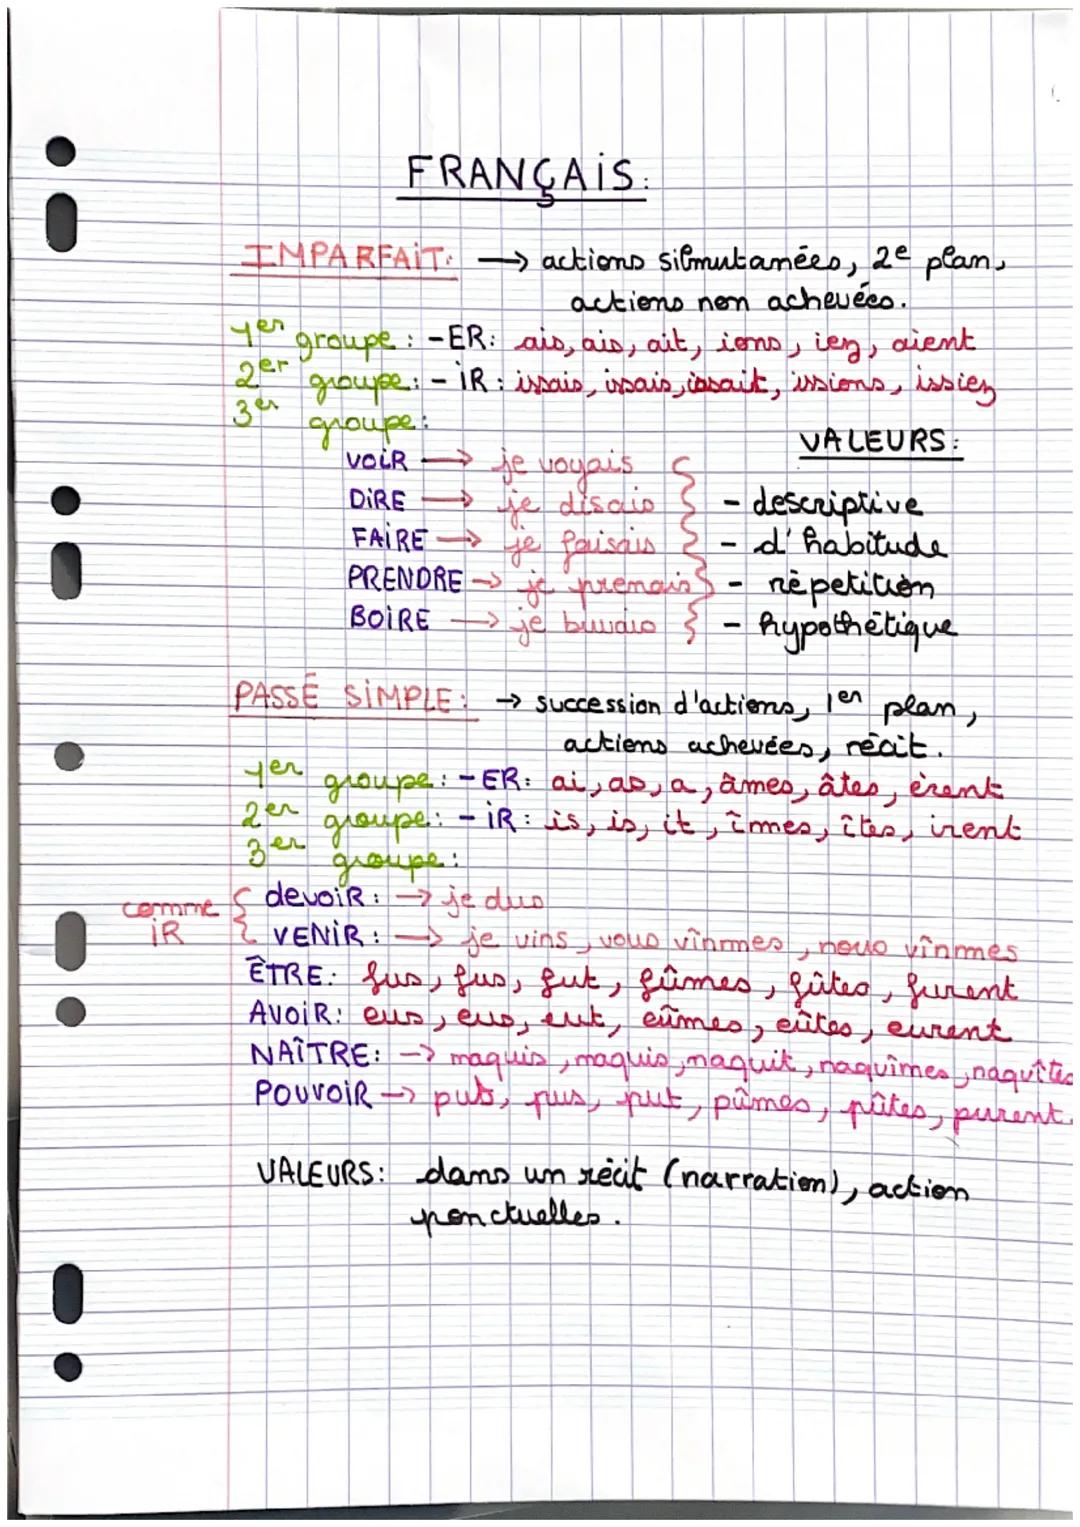 FRANÇAIS:
IMPARFAIT: → actions silmutanées, 2e plan,
actions non achevées.
1er groupe : -ER: ais, ais, ait, ions, iez, aient
2er groupe: - IR : issais, issais, issait, issions, issiez
3er groupe:
VALEURS:
VOIR → je voyais
DIRE → je disais - descriptive
FAIRE → je faisais - d'habitude
PRENDRE → je prenais - rèpetition
BOIRE → je buvais - hypothètique
PASSÉ SIMPLE: → succession d'actions, 1er plan,
actions achevées, récit.
1er groupe: -ER: ai, as, a, âmes, âtes, èrent
2er groupe: - IR: is, is, it, îmes, îtes, irent
3er groupe:
comme IR
devoiR: → je dus
VENIR: → je vins, vous vînmes, nous vînmes
ÊTRE: fus, fus, fut, fûmes, fûtes, furent
AVOIR: eus, eus, eut, eûmes, eûtes, eurent
NAÎTRE: → naquis, naquis, naquit, naquîmes, naquîtes
POUVOIR → pus, pus, put, pûmes, pûtes, purent.
VALEURS: dans un rècit (narration), action
ponctuelles.